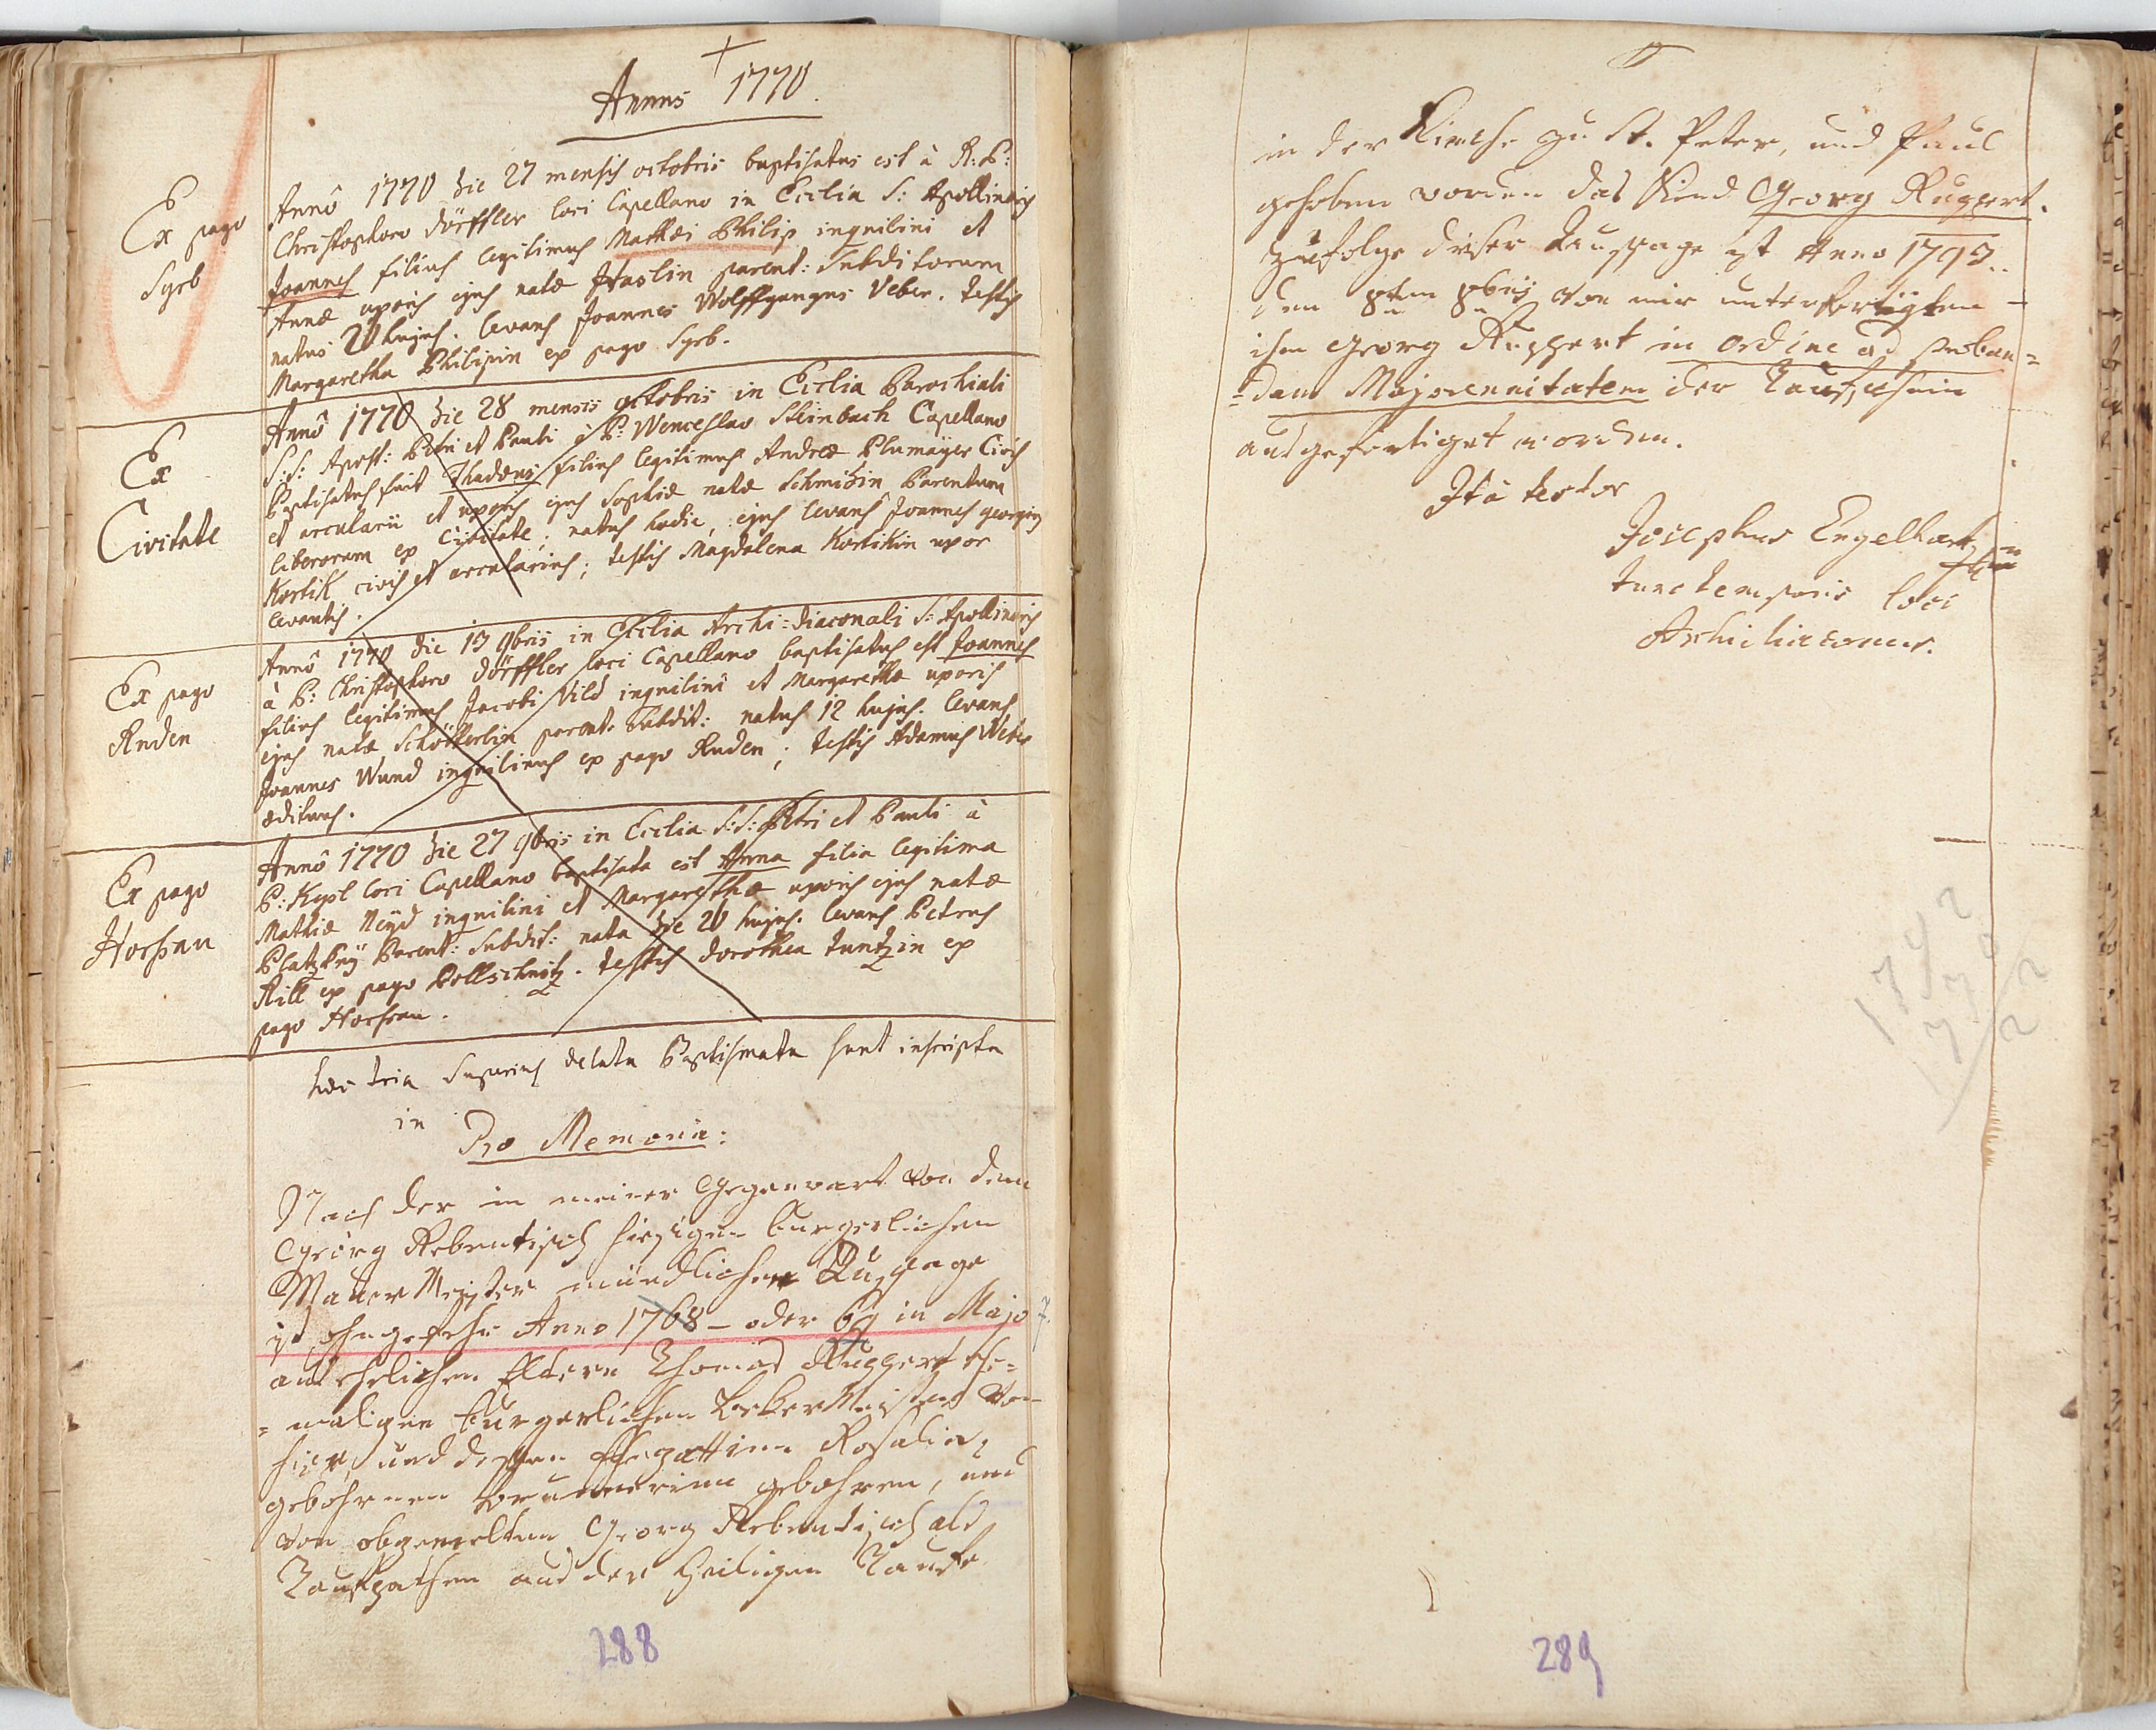 Annus 1770.
Ex pago
Sÿrb
Annô 1770 die 27 mensis octobris baptisatus est à R: P:
Christophoro Dörffler loci Capellano in Ecclia S: Apollinaris
Joannes filius legitimus Mathæi Philip inquilini et
Annæ uxoris ejus natæ Haslin parent: Subditorum
natus 20 hujus. levans Joannes Wolffgangus Veber. testis
Margaretha Philipin ex pago Sÿrb.
Ex
Civitate
Annô 1770 die 28 mensis octobris in Ecclia Parochiali
S:S: Apost: Petri et Pauli à P: Wenceslao Steinbach Capellano
Baptisatus fuit Thadæus filius legitimus Andreæ Plumaÿer Civis
et arcularii et uxoris ejus Sophiæ natæ Schmidin Parentum
liberorum ex Civitate; natus hodie, ejus levans Joannes georgius
Kortik civis et arcularius; testis Magdalena Kortikin uxor
levantis.
Ex pago
Ruden
Annô 1770 die 13 9bris in Ecclia Archi=diaconali S: Apollinaris
à P: Christophoro Dörffler loci Capellano baptisatus est Joannes
filius legitimus Jacobi Vild inquilini et Margarethæ uxoris
ejus natæ parent: Subdit: natus 12 hujus. levans
Joannes Wund inquilinus ex pago Ruden; testis Adamus Weber
ædituus.
Ex pago
Horschau
Annô 1770 die 27 9bris in Ecclia S:S: Petri et Pauli à
P: Kepl loci Capellano baptisata est Anna filia legitima
Mathiæ Neÿd inquilini et Margarethæ uxoris ejus natæ
Platzkÿ Parent: Subdit: nata die 20 hujus. levans Petrus
Rill ex pago Pollschnitz. testis Dorothea Tuntzin ex
pago Horschau.
hæc tria Superius delata Baptismata sunt inscripta
in
Pro Memoria:
Nach der in meiner Gegenwart von dem
Georg Rebentisch hiesigen burgerlichen
Maurer Meister mündlicher Aussage
ist ohngefehr Anno 1768 - oder 69 in Majo
aus ehelichen Eltern Thomas Ruppert ehe=
=maligen burgerlichen Becker Meister von
hier, und dessen Ehegattinn Rosalia,
gebohrnen gebohren, und
von obgemelten Georg Rebentisch als
Taufpathen aus der heiligen Taufe
288
in der Kirche zu St. Peter, und Paul
gehoben worden das Kind Georg Ruppert.
Zufolge dieser Aussage ist Anno 1793..
den 8ten 8bris von mir unterfertigten -
ihm Georg Ruppert in ordine ad proban=
=dam Majorennitatem der Taufschein
ausgefertiget worden.
Ità testor
Josephus Engelhart
tunc temporis loci
Archidiaconus.
289